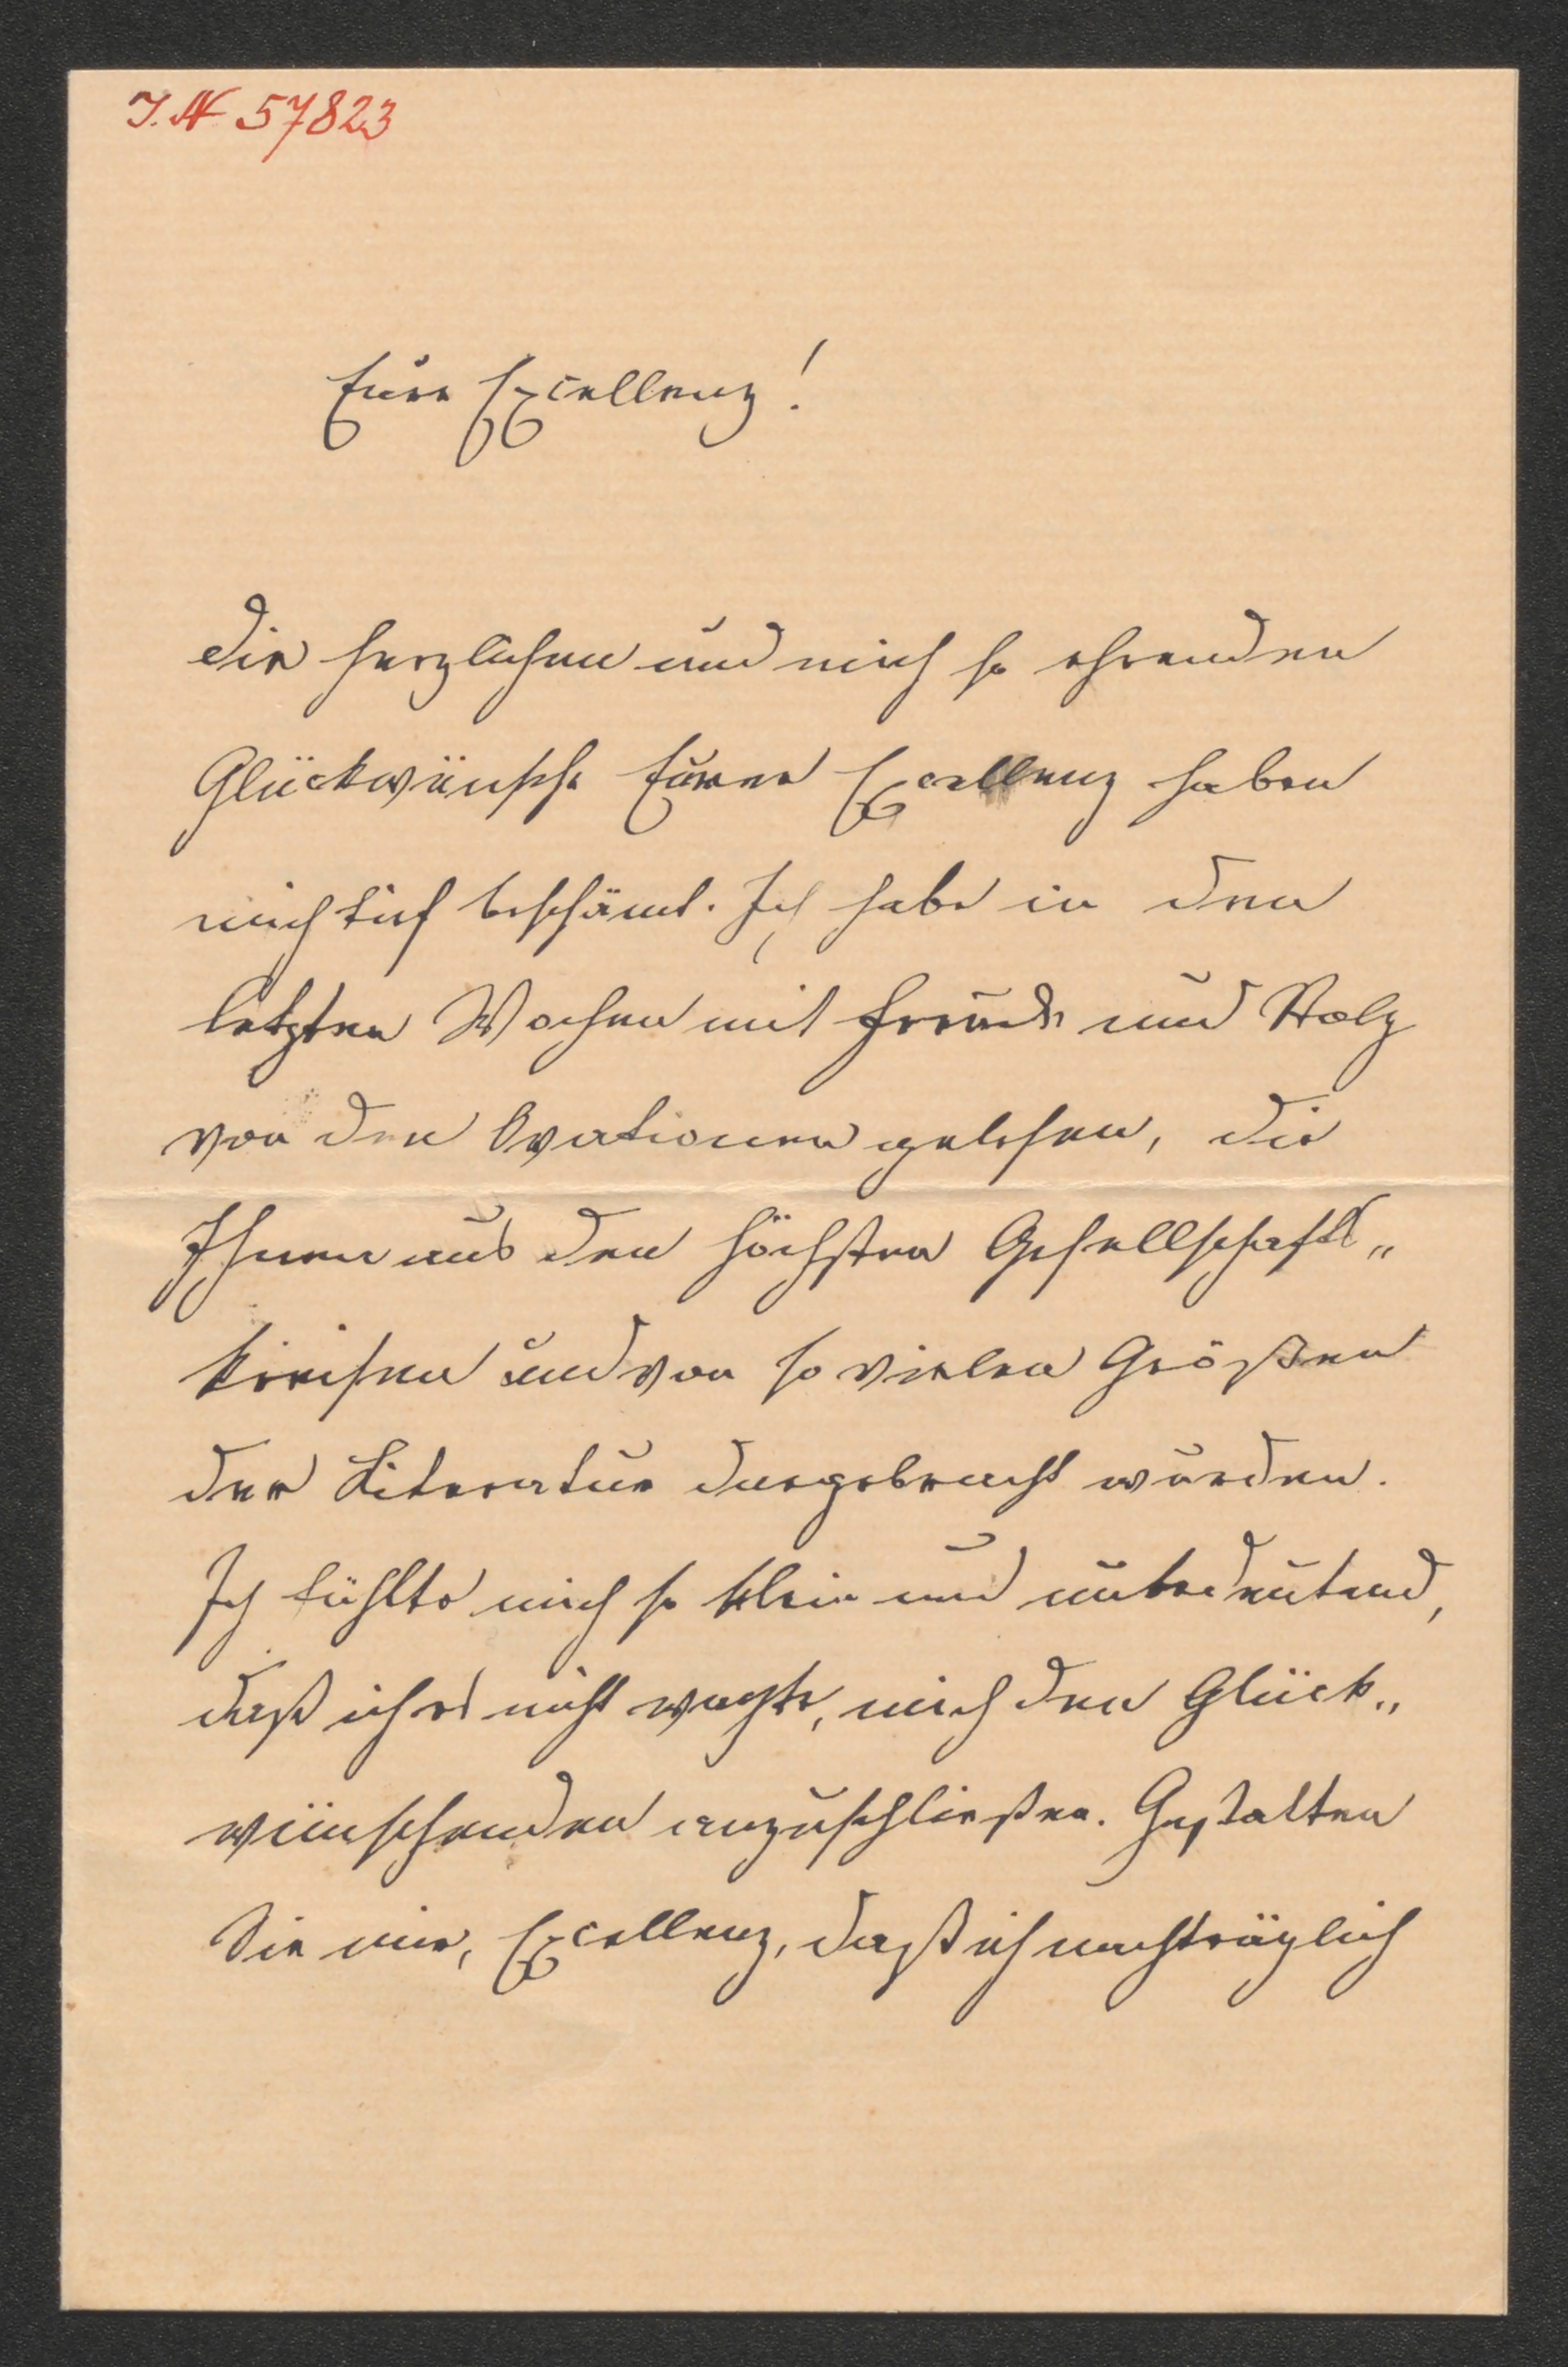 I. N 57823
Eure Excellenz!
die herzlichen und mich so ehrenden
Glückwünsche Eurer Excellenz haben
mich tief beschämt. Ich habe in den
letzten Wochen mit Freude und Stolz
von den Ovationen gelesen, die
Ihnen aus den höchsten Gesellschafts„
kreisen und von so vielen Größen
der Literatur dargebracht wurden.
Ich fühlte mich so klein und unbedeutend,
daß ich es nicht wagte, mich den Glück„
wünschenden anzuschließen. Gestatten
Sie mir, Excellenz, daß ich nachträglich